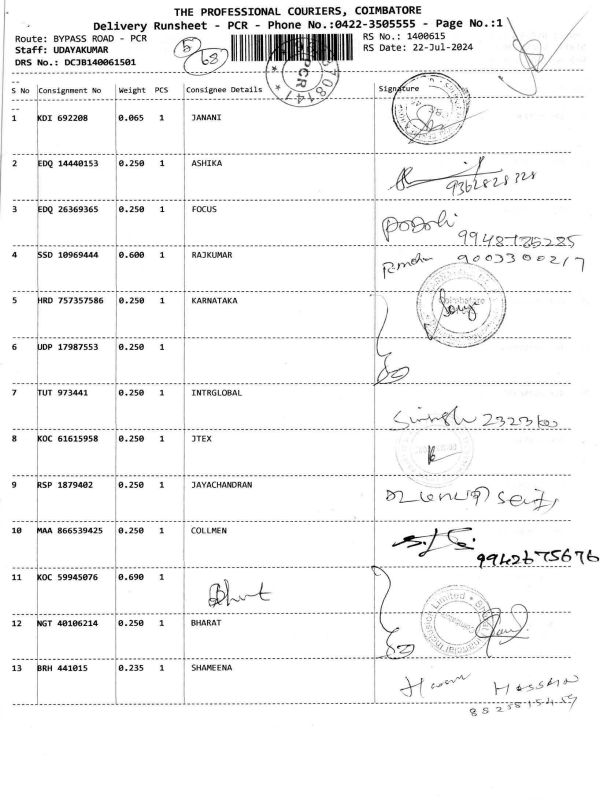 THE PROFESSIONAL COURIERS, COIMBATORE
Delivery Runsheet - PCR - Phone No.:0422-3505555 - Page No.:1
Route: BYPASS ROAD - PCR
RS No.: 1400615
Staff: UDAYAKUMAR
RS Date: 22-Jul-2024
DRS No.: DCJB140061501
5
68
PCR
S No Consignment No Weight PCS Consignee Details Signature
1 KDI 692208 0.065 1 JANANI
2 EDQ 14440153 0.250 1 ASHIKA
9362828328
3 EDQ 26369365 0.250 1 FOCUS
4 SSD 10969444 0.600 1 RAJKUMAR
9003300217
5 HRD 757357586 0.250 1 KARNATAKA
6 UDP 17987553 0.250 1
7 TUT 973441 0.250 1 INTRGLOBAL
8 KOC 61615958 0.250 1 JTEX
9 RSP 1879402 0.250 1 JAYACHANDRAN
10 MAA 866539425 0.250 1 COLLMEN
9942675676
11 KOC 59945076 0.690 1
12 NGT 40106214 0.250 1 BHARAT
13 BRH 441015 0.235 1 SHAMEENA